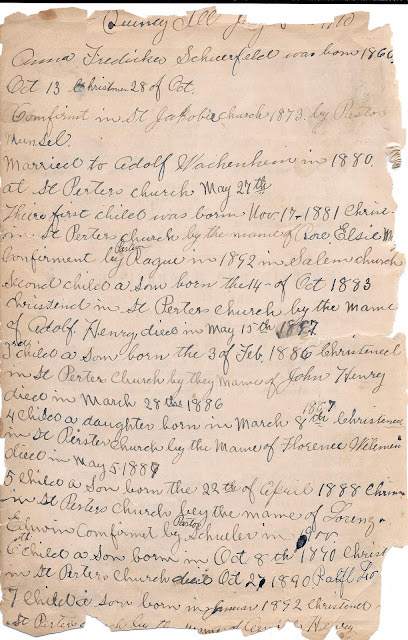 Quincy Ill
Anna Fredicke Scheerfeldt was born 1860
Oct 13 Christmen 28 of Oct.
Comfirmt in St Jakobie church 1873. by Pastor
Munsel.
Married to Adolf Wachenheim in 1880.
at St Perters church May 27th
Theire first child was born Nov. 17 - 1881 Christ-
in St Perters church by the mame of Elsie M
Comfirment by Pastor Rague in 1892 in Salem church
second child a Son born the 14 - of Oct 1883
Christend in St Perters church by the Mame
of Adolf. Henry, died in May 15th 1887
3 child a Son born the 3 of Feb. 1886 Christened
in St Perter Church by they Mame of John Henry
died in March 28th 1886
4 Child a daughter born in March 8th 1887 Christened
in St Perster church by the Mame of Florence
died in May 5. 1887
5 child a Son born the 22th of April 1888
in St Persters church bey the mame of Lorenz
Edwin Comfirmt by Pastor Schueler in
6th Child a Son born in Oct 8th 1890 Christ
in St Perters Church died Oct 27 1890
7 Child a Son born in 1892 Christened
St Perters church by the mame Henry